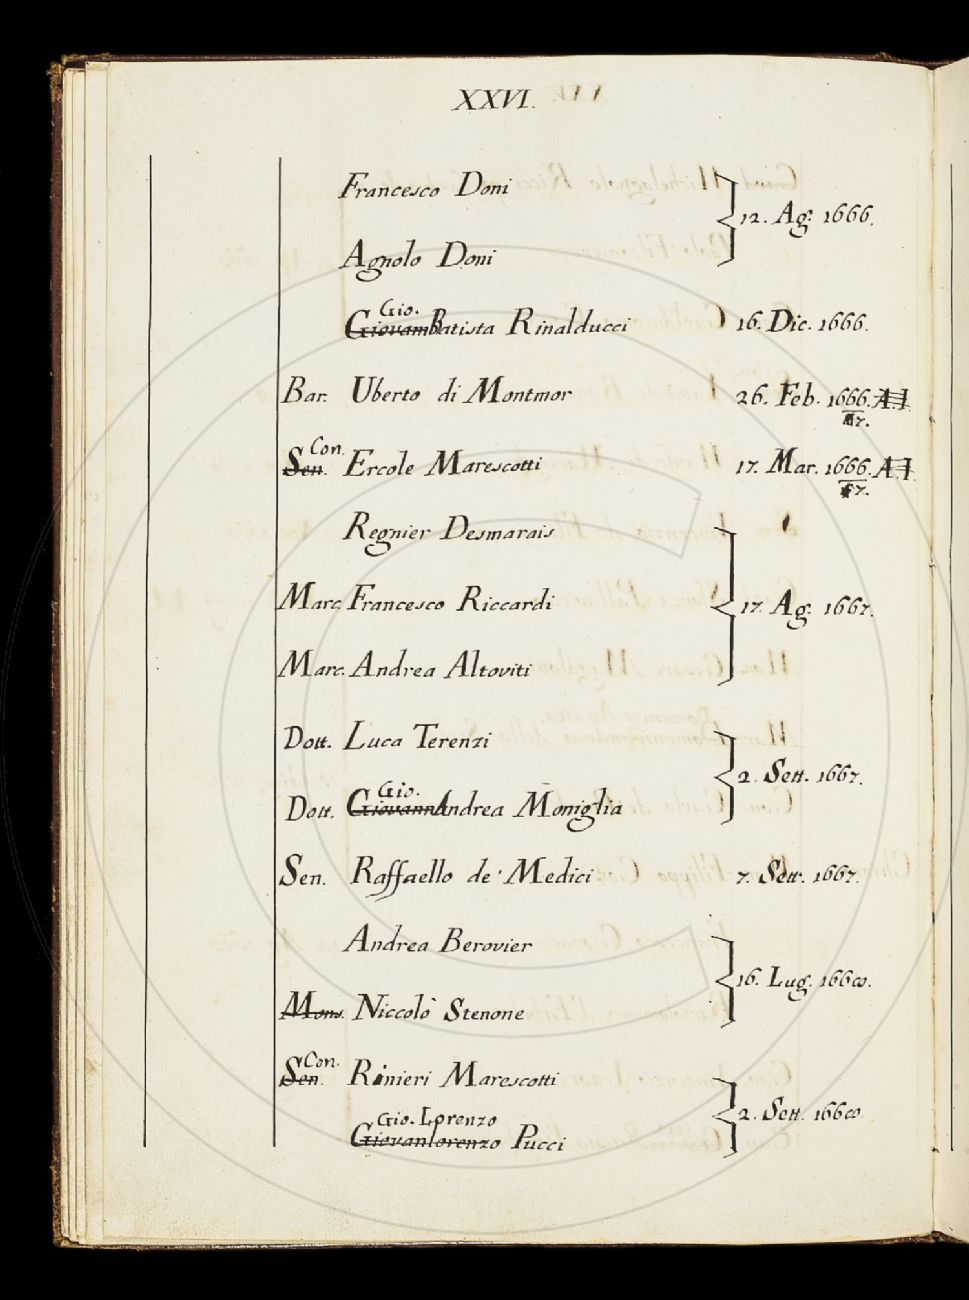 XXVI.
Francesco Doni
12. Ag. 1666.
Agnolo Doni
Gio.
GiovamBatista Rinalducci 16. Dic. 1666.
Bar. Uberto di Montmor 26. Feb. 1666. A.I
7.
Con.
Sen. Ercole Marescotti 17. Mar. 1666. A.I
7.
Regnier Desmarais
Marc. Francesco Riccardi 17. Ag. 1667.
Marc. Andrea Altoviti
Dott. Luca Terenzi
2. Sett. 1667.
Gio.
Dott. GiovannAndrea Moniglia
Sen. Raffaello de' Medici 7. Sett. 1667.
Andrea Berovier
16. Lug. 1668.
Mons. Niccolò Stenone
Con.
Sen. Rinieri Marescotti
2. Sett. 1668
Gio. Lorenzo
Giovanlorenzo Pucci